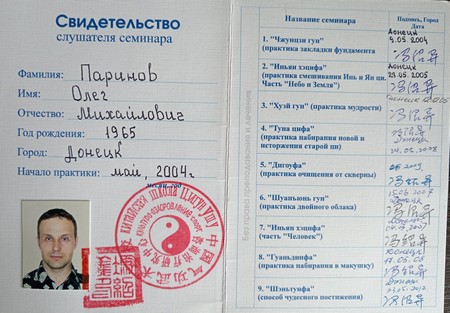 Свидетельство
слушателя семинара
Фамилия: Паринов
Имя: Олег
Отчество: Михайлович
Год рождения: 1965
Город: Донецк
Начало практики: май, 2004г.
месяц, год
Название семинара
Подпись, Город
Дата
1. "Чжунцзи гун"
(практика закладки фундамента
Донецк
9.05.2004
2. "Иньян хэцифа"
(практика смешивания Инь и Ян ци.
Часть "Небо и Земля")
Донецк
29.05.2005
3. "Хуэй гун" (практика мудрости)
4. "Туна цифа"
(практика набирания новой и
исторжения старой ци)
Донецк
5. "Дигоуфа"
(практика очищения от скверны)
6. "Шуанъюнь гун"
(практика двойного облака)
7. "Иньян хэцифа"
(часть "Человек")
8. "Гуаньдинфа"
(практика набирания в макушку)
9. "Шэньтунфа"
(способ чудесного постижения)